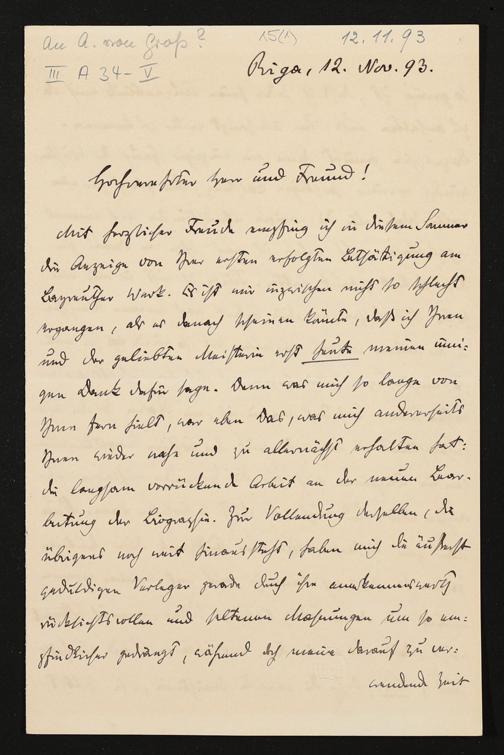 An A. von Groß?
15(1)
12.11.93
III A 34-V
Riga, 12. Nov. 93.
Hochverehrter Herr und Freund!
Mit herzlicher Freude empfing ich in diesem Sommer
die Anzeige von Ihrer ersten erfolgten Bethätigung am
Bayreuther Werk. Es ist mir inzwischen nicht so schlecht
ergangen, als es danach scheinen könnte, daß ich Ihnen
und der geliebten Meisterin erst heute meinen inni-
gen Dank dafür sage. Denn was mich so lange von
Ihnen fern hielt, war eben Das, was mich andererseits
Ihnen wieder nahe und zu allernächst erhalten hat:
die langsam vorrückende Arbeit an der neuen Bear-
beitung der Biographie. Zur Vollendung derselben, die
übrigens noch weit hinaussteht, haben mich die äußerst
geduldigen Verleger gerade durch ihre anerkennenswerth
rücksichtsvollen und seltenen Mahnungen um so em-
pfindlicher gedrängt, während doch meine darauf zu ver-
wendende Zeit